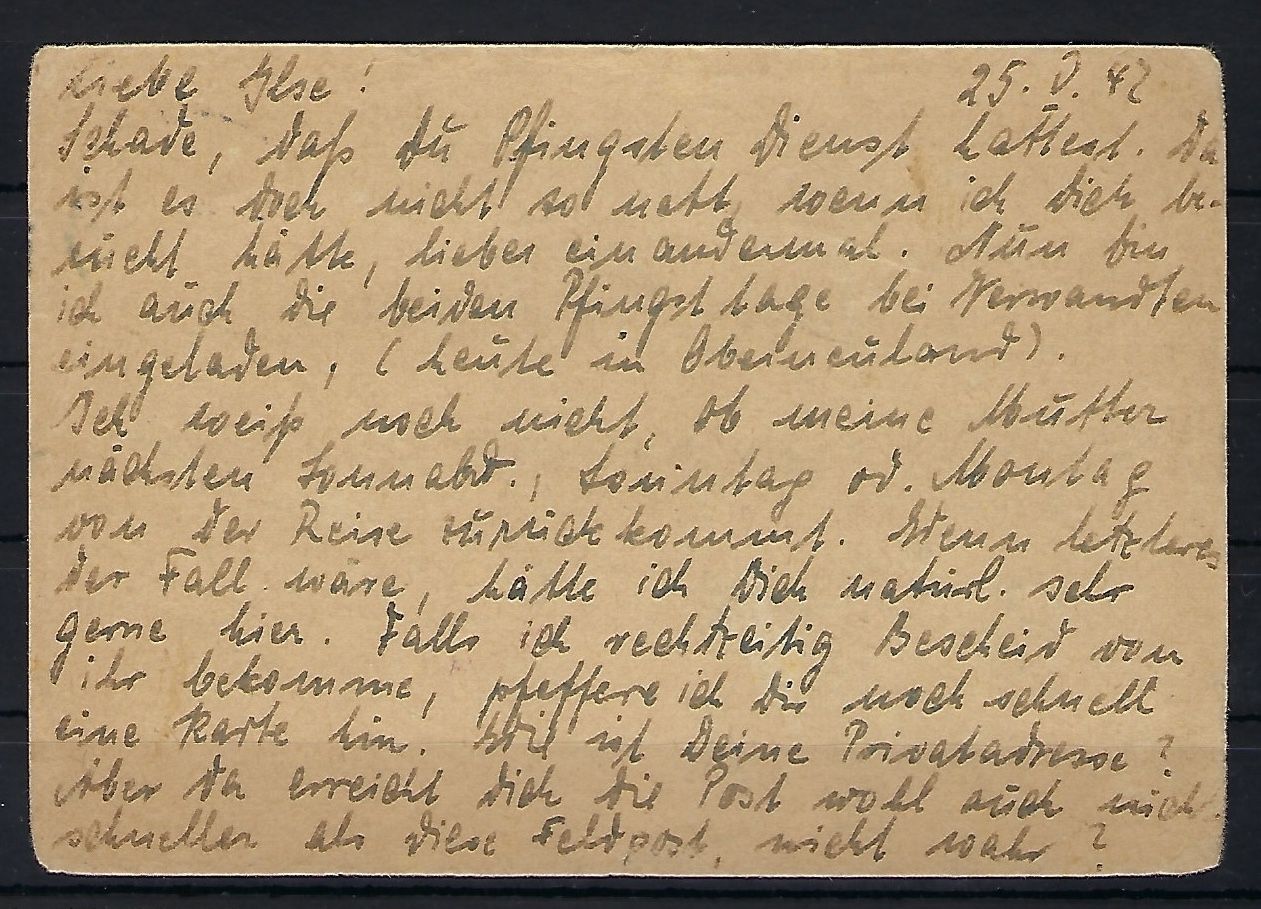 Liebe Ilse! 25. V. 42
Schade, daß Du Pfingsten Dienst hattest. Da
ist es doch nicht so nett, wenn ich Dich be-
sucht hätte, lieber ein andermal. Nun bin
ich auch die beiden Pfingsttage bei Verwandten
eingeladen, (heute in Oberneuland).
Ich weiß noch nicht, ob meine Mutter
nächsten Sonnabd., Sonntag od. Montag
von der Reise zurückkommt. Wenn letzteres
der Fall wäre, hätte ich Dich natürl. sehr
gerne hier. Falls ich rechtzeitig Bescheid von
ihr bekomme, pfeffere ich Dir noch schnell
eine Karte hin. Wie ist Deine Privatadresse?
Aber da erreicht Dich die Post wohl auch nicht
schneller als diese Feldpost, nicht wahr?